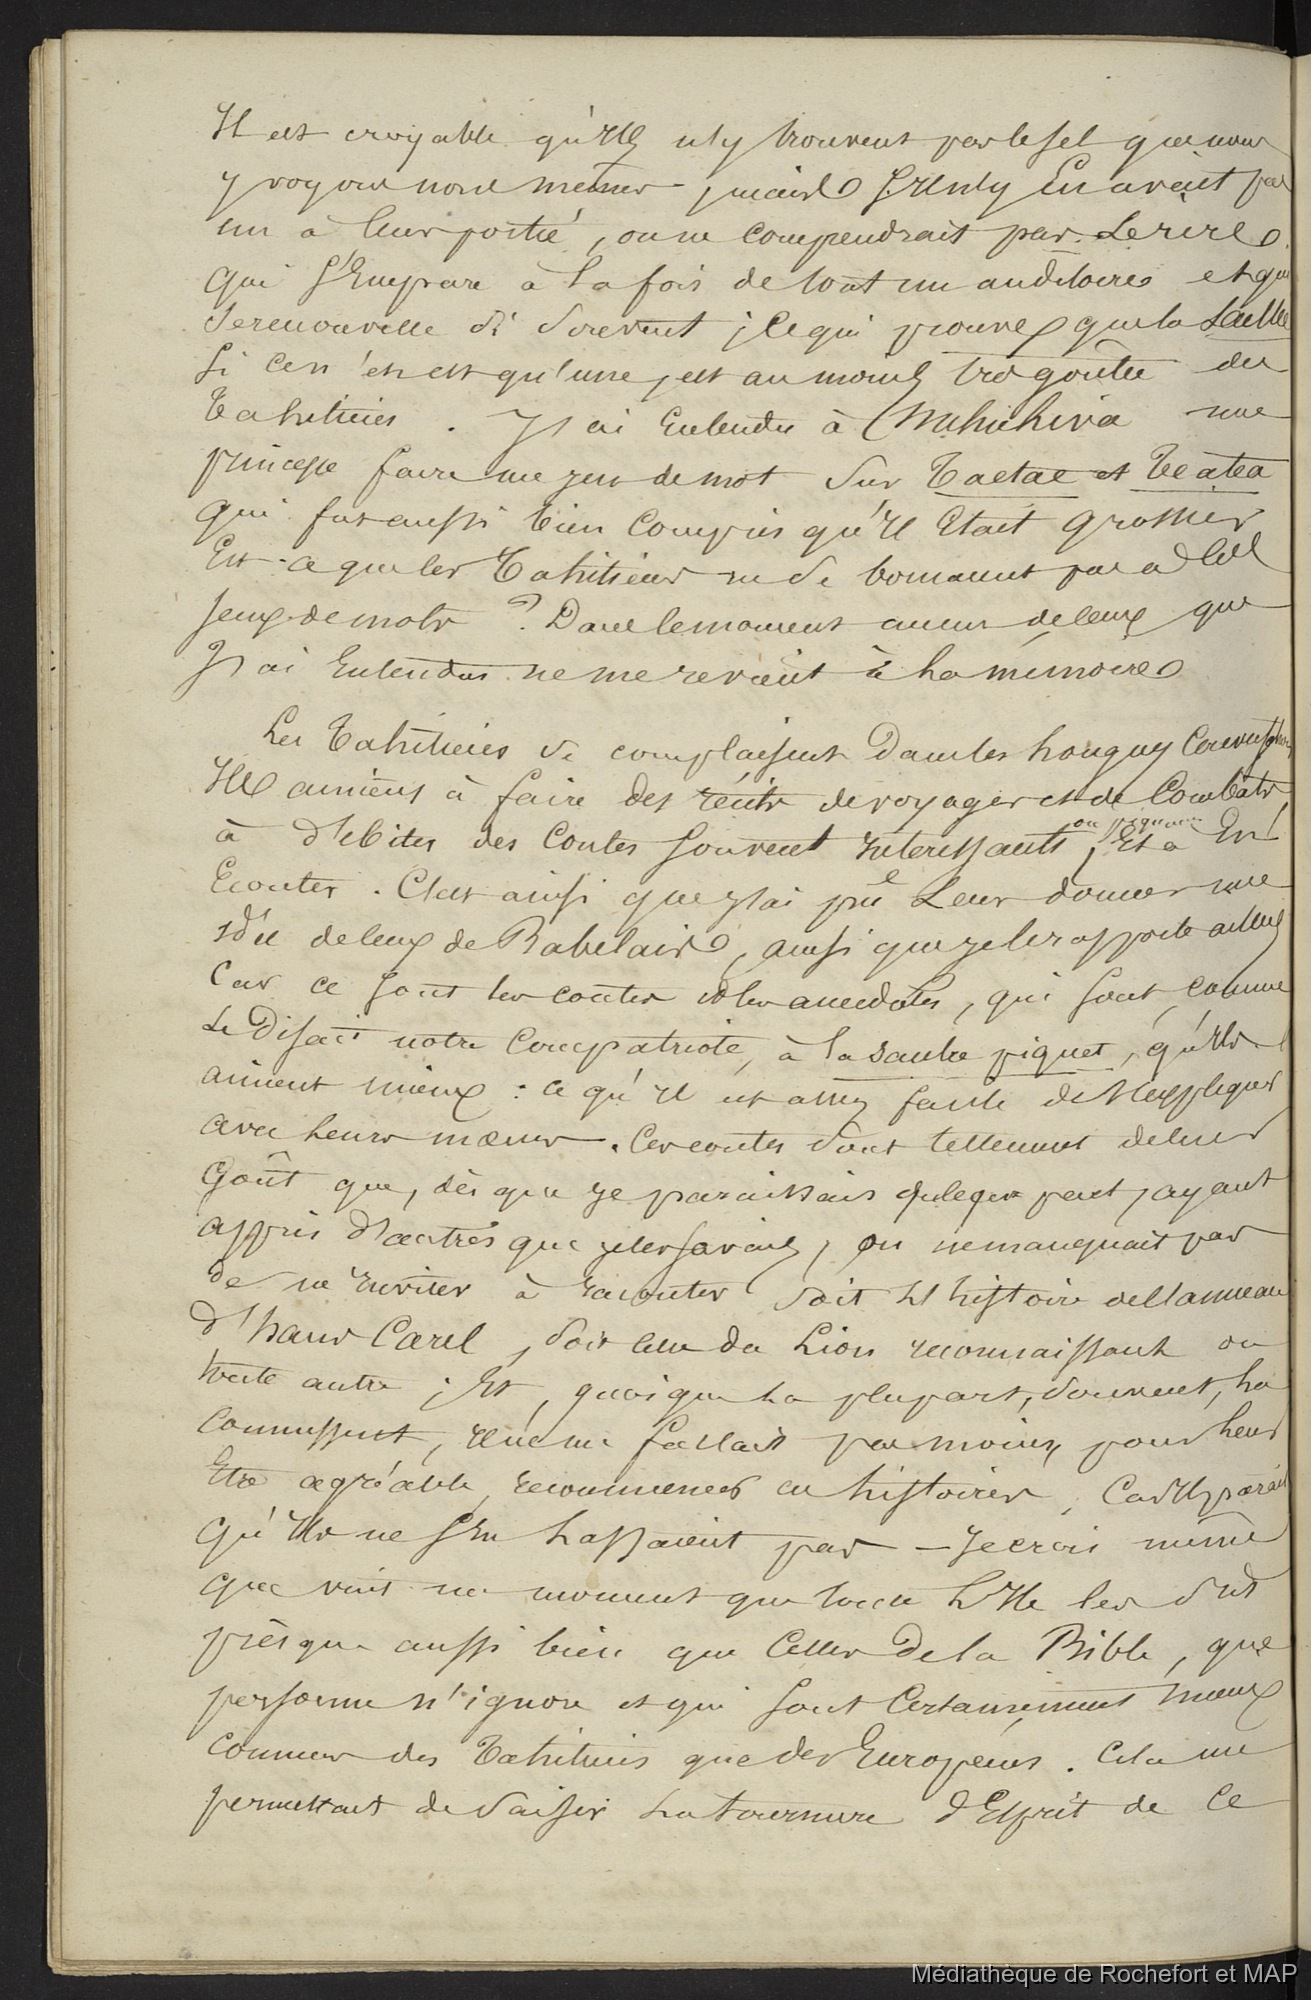 Il est croyable qu'Ils n'y trouvent pas le sel que nous
y voyons nous mêmes, mais s'Il n'y en avait pas
un à leur portée, on ne comprendrait pas le rire
qui s'Empare à la fois de tout un auditoire et qui
se renouvelle si souvent ; ce qui prouve que la saillie
si ce n'en est qu'une, est au moins très goûtée des
Tahitiens. J'ai Entendu à Nuhuhiva une
princesse faire un jeu de mot sur Taetae et Teatea
qui fut aussi bien compris qu'Il Etait grossier
Est-ce que les Tahitiens ne se
jeux de mots ? Dans le moment aucun de ceux que
J'ai Entendus ne me revient à la mémoire
Les Tahitiens se complaisent dans les longues Conversations
Ils aiment à faire des récits de voyages et de Combats,
à débiter des Contes souvent Interessants ou piquans, Et à En
Ecouter. C'est ainsi que j'ai pu Leur donner une
Idée de ceux de Rabelais, ainsi que je le rapporte ailleurs
Car ce sont les contes et les anecdotes, qui sont, comme
Le Disait notre Compatriote, à la sauce piquet, qu'Ils
aiment mieux : ce qu'Il est assez facile de s'expliquer
avec leurs mœurs. Ces contes sont tellement de leur
Goût que, dès que je paraissais quelque part, ayant
appris d'autres que je les savais, on ne manquait pas
de m'inviter à raconter soit L'histoire de l'anneau
d'hans Carel, soit celle du Lion reconnaissant ou
toute autre ; Et, quoique la plupart, souvent, la
connussent, Il ne me fallait pas moins, pour leur
Etre agréable, recommencer ces histoires, Car Il paraît
qu'Ils ne s'En lassaient pas – Je crois même
que vint un moment que toute L'Ile les sut
presque aussi bien que Celles de la Bible, que
personne n'ignore et qui sont Certainement mieux
connues des Tahitiens que des Européens. Cela me
permettait de saisir la tournure d'Esprit de ce
Médiathèque de Rochefort et MAP